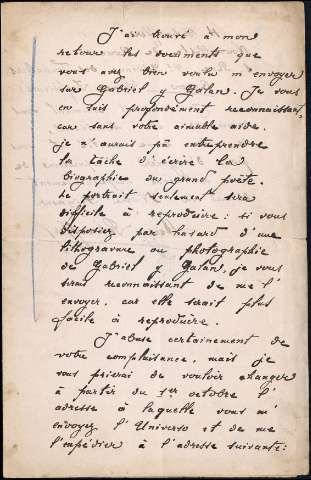 J'ai trouvé à mon
retour les documents que
vous avez bien voulu m'envoyer
sur Gabriel y Galan. Je vous
en suis profondément reconnaissant,
car sans votre aimable aide.
je n'aurais pû entreprendre
la tâche d'écrire la
biographie du grand poète.
Le portrait seulement sera
difficile à reproduire : si vous
disposiez par hasard d'une
lithogravure ou photographie
de Gabriel y Galan, je vous
serais reconnaissant de me l'
envoyer, car elle serait plus
facile à reproduire.
J'abuse certainement de
votre complaisance, mais je
vous prierai de vouloir changer
à partir du 1er octobre l'
adresse à laquelle vous m'
envoyez l'Universo et de me
l'expédier à l'adresse suivante :